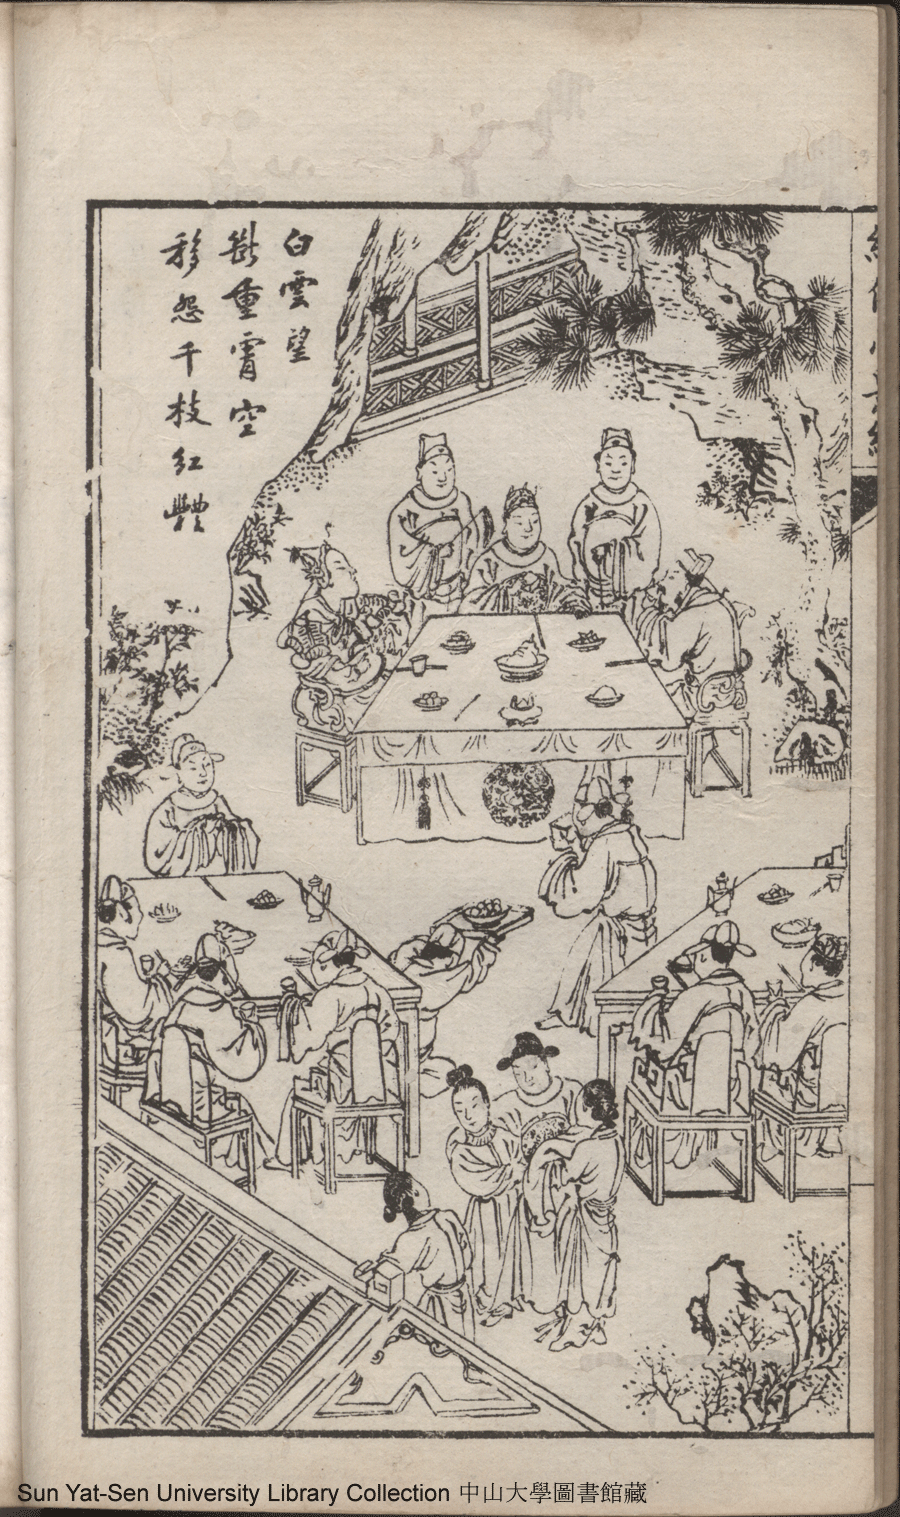 白雲望
斷重霄空
移怨千枝紅豔
Sun Yat-Sen University Library Collection 中山大學圖書館藏